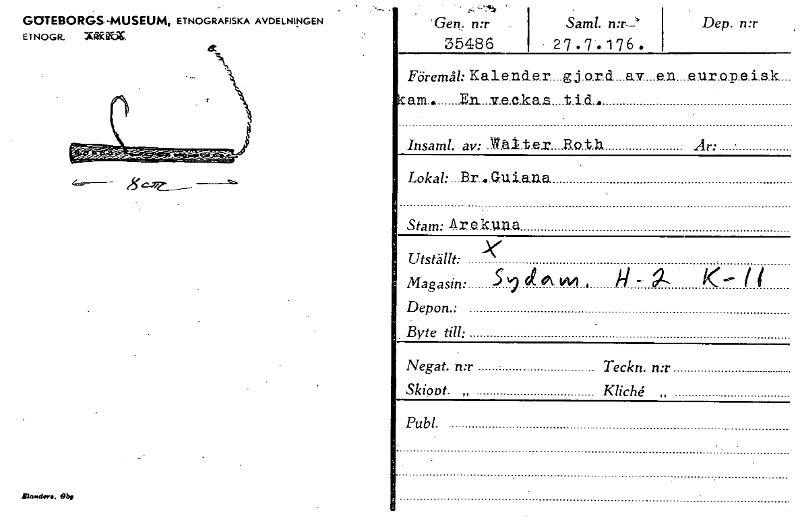 GÖTEBORGS MUSEUM, ETNOGRAFISKA AVDELNINGEN
ETNOGR.
8cm
Elanders, Gbg
Gen. n:r Saml. n:r Dep. n:r
35486 27.7.176.
Föremål: Kalender gjord av en europeisk
kam. En veckas tid.
Insaml. av: Walter Roth År:
Lokal: Br.Guiana
Stam: Arekuna
Utställt: X
Magasin: Sydam. H-2 K-11
Depon.:
Byte till:
Negat. n:r Teckn. n:r
Skiopt. „ Kliché „
Publ.